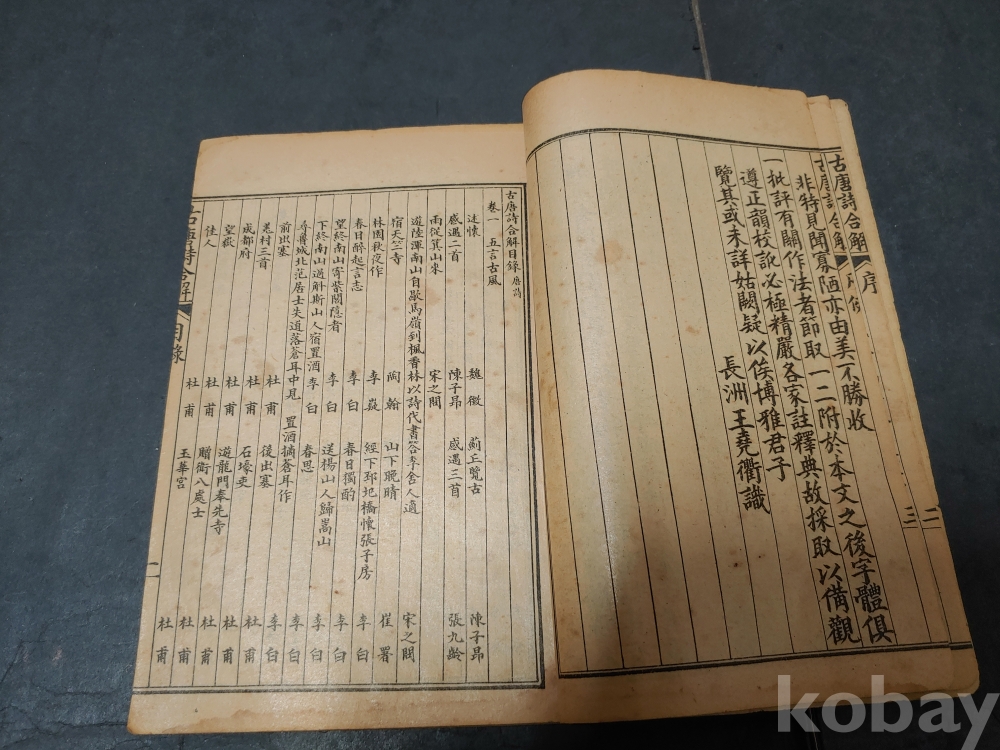 古唐詩合解 序 二
古唐詩合解 序 三
非特見聞寡陋亦由美不勝收
一批評有關作法者節取一二附於本文之後字體俱
遵正韻校訛必極精嚴各家註釋典故採取以備觀
覽其或未詳姑闕疑以俟博雅君子
長洲王堯衢識
古唐詩合解目錄 唐詩
卷一 五言古風
述懷 魏徵 薊丘覽古 陳子昂
感遇二首 陳子昂 感遇三首 張九齡
雨從箕山來 宋之問
遊陸渾南山自歇馬嶺到楓香林以詩代書答李舍人適 宋之問
宿天竺寺 陶翰 山下晚晴 崔署
林園秋夜作 李嶷 經下邳圯橋懷張子房 李白
春日醉起言志 李白 春日獨酌 李白
望終南山寄紫閣隱者 李白 送楊山人歸嵩山 李白
下終南山過斛斯山人宿置酒 李白 春思 李白
尋魯城北范居士失道落蒼耳中見 置酒摘蒼耳作 李白
前出塞 杜甫 後出塞 杜甫
羌村三首 杜甫 石壕吏 杜甫
成都府 杜甫 遊龍門奉先寺 杜甫
望嶽 杜甫 贈衛八處士 杜甫
佳人 杜甫 玉華宮 杜甫
古唐詩合解 目錄 一
kobay